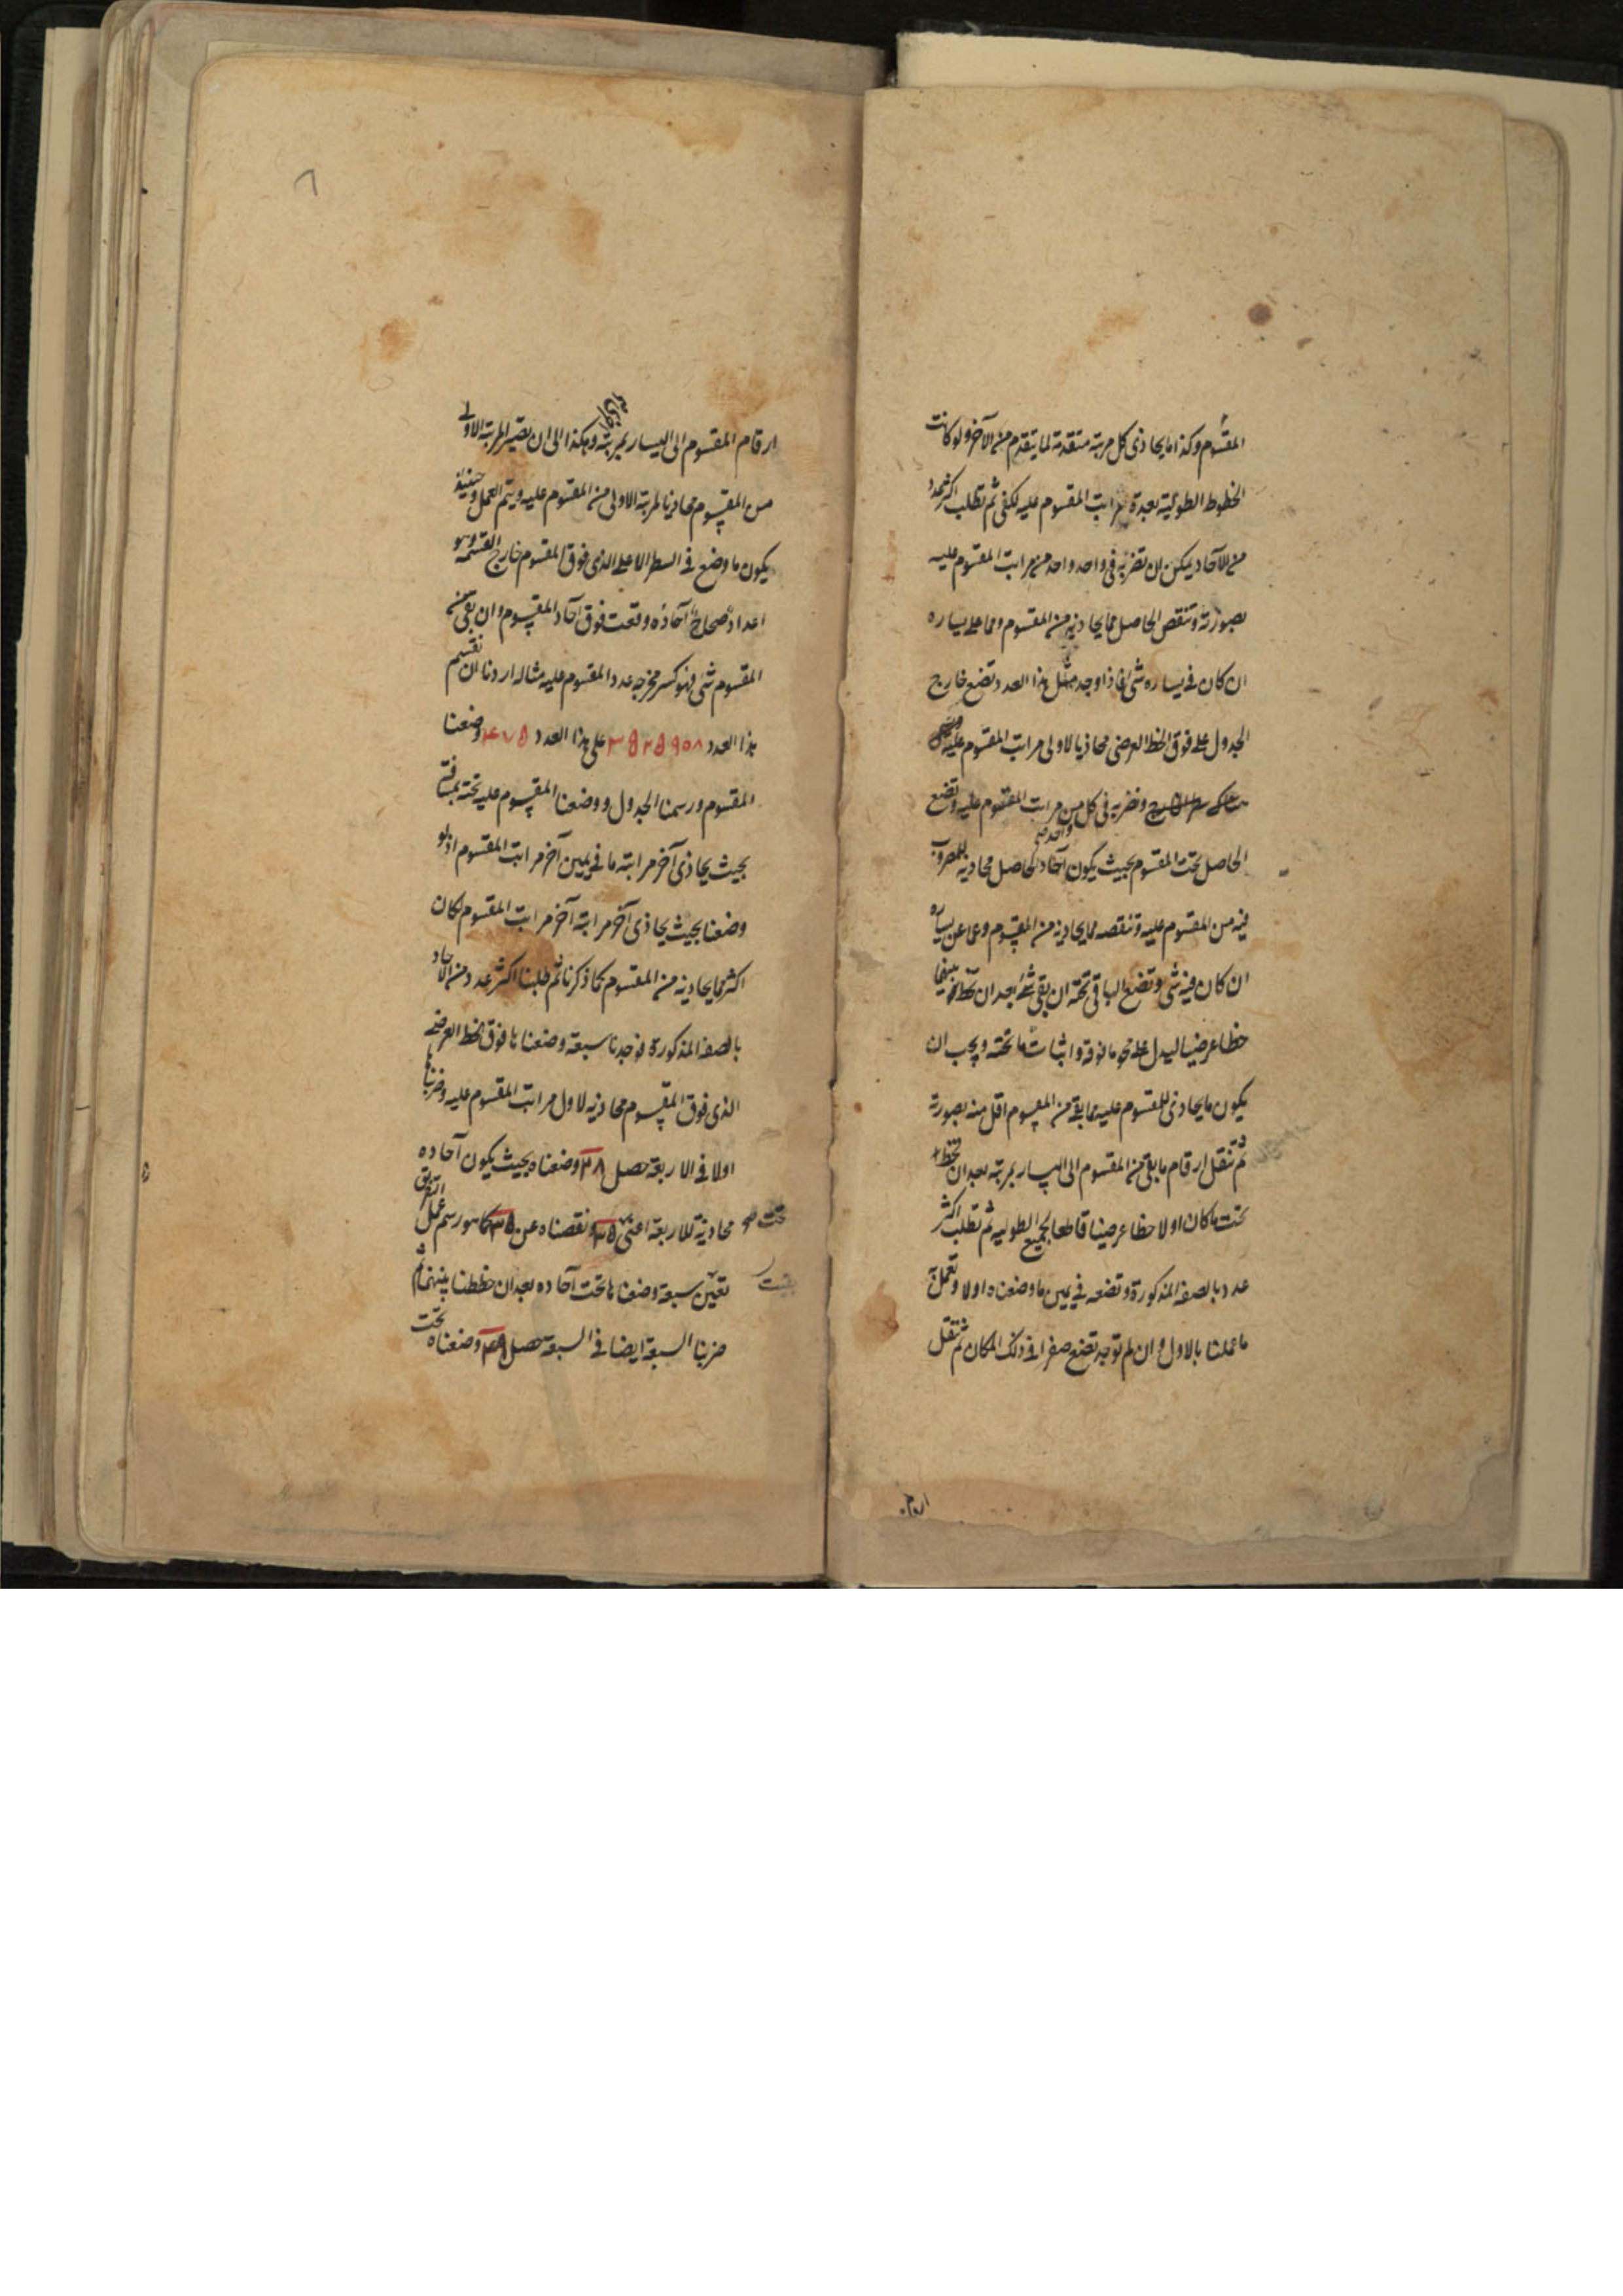 المقسوم وكذا ما يحاذى كل مرتبة متقدمة لما يتقدم من الآخر ولو كانت
الخطوط الطولية بعدة مراتب المقسوم عليه لكفى ثم تطلب اكثر عدد
من الآحاد يمكن ان تضربه فى واحد واحد من مراتب المقسوم عليه
بصورته وتنقص الحاصل مما يحاذيه من المقسوم ومما على يساره
ان كان فى يساره شى فاذا وجد مثل هذا العدد تضع خارج
الجدول على فوق الخط العرضى محاذيا لاولى مراتب المقسوم عليه
وتضربه فى كل من مراتب المقسوم عليه وتضع
الحاصل تحت المقسوم بحيث يكون آحاد الحاصل محاذيه للمضروب
واحد صح
فيه من المقسوم عليه وتنقصه مما يحاذيه من المقسوم وعما عن يساره
ان كان فيه شى وتضع الباقى تحته ان بقى شئ بعد ان تخط بينهما
خطا عرضيا ليدل على محو ما فوقه واثبات ما تحته ويجب ان
يكون ما يحاذى للمقسوم عليه مما بقى من المقسوم اقل منه بصورته
ثم تنقل ارقام ما بقى من المقسوم الى اليسار بمرتبة بعد ان تخط
تحت ما كان اولا خطا عرضيا قاطعا لجميع الطولية ثم تطلب اكثر
عدد بالصفة المذكورة وتضعه فى يمين ما وضعناه اولا وتعمل به
ما عملنا بالاول وان لم توجد تضع صفرا فى ذلك المكان ثم تنقل
ارقام
ارقام المقسوم الى اليسار بمرتبة وهكذا الى ان يصير المرتبة الاولى
من المقسوم محاذيا لمرتبة الاولى من المقسوم عليه ويتم العمل وحينئذ
يكون ما وضع فى السطر الاعلى الذى فوق المقسوم خارج القسمة وهو
اعداد صحاح آحاده وقعت فوق آحاد المقسوم وان بقى من
المقسوم شى فهو كسر مخرجه عدد المقسوم عليه مثاله اردنا ان نقسم
هذا العدد على هذا العدد وضعنا
المقسوم ورسمنا الجدول ووضعنا المقسوم عليه تحته بمسافة
بحيث يحاذى آخر مراتبه ما فى يمين آخر مراتب المقسوم اذ لو
وضعنا بحيث يحاذى آخر مراتبه آخر مراتب المقسوم لكان
اكثر مما يحاذيه من المقسوم كما ذكرنا ثم طلبنا اكثر عدد من الآحاد
بالصفة المذكورة فوجدنا سبعة وضعناها فوق الخط العرضى
الذى فوق المقسوم محاذيه لاول مراتب المقسوم عليه وضربناها
اولا فى الاربعة حصل ٢٨ وضعناه بحيث يكون آحاده
تحت صح محاذية للاربعة اعنى ونقصناه عن ٣٥ كما هو رسم عمل التفريق
بقيت سبعة وضعناها تحت آحاده بعد ان خططنا بينهما ثم
ضربنا السبعة ايضا فى السبعة حصل ٤٩ وضعناه تحت